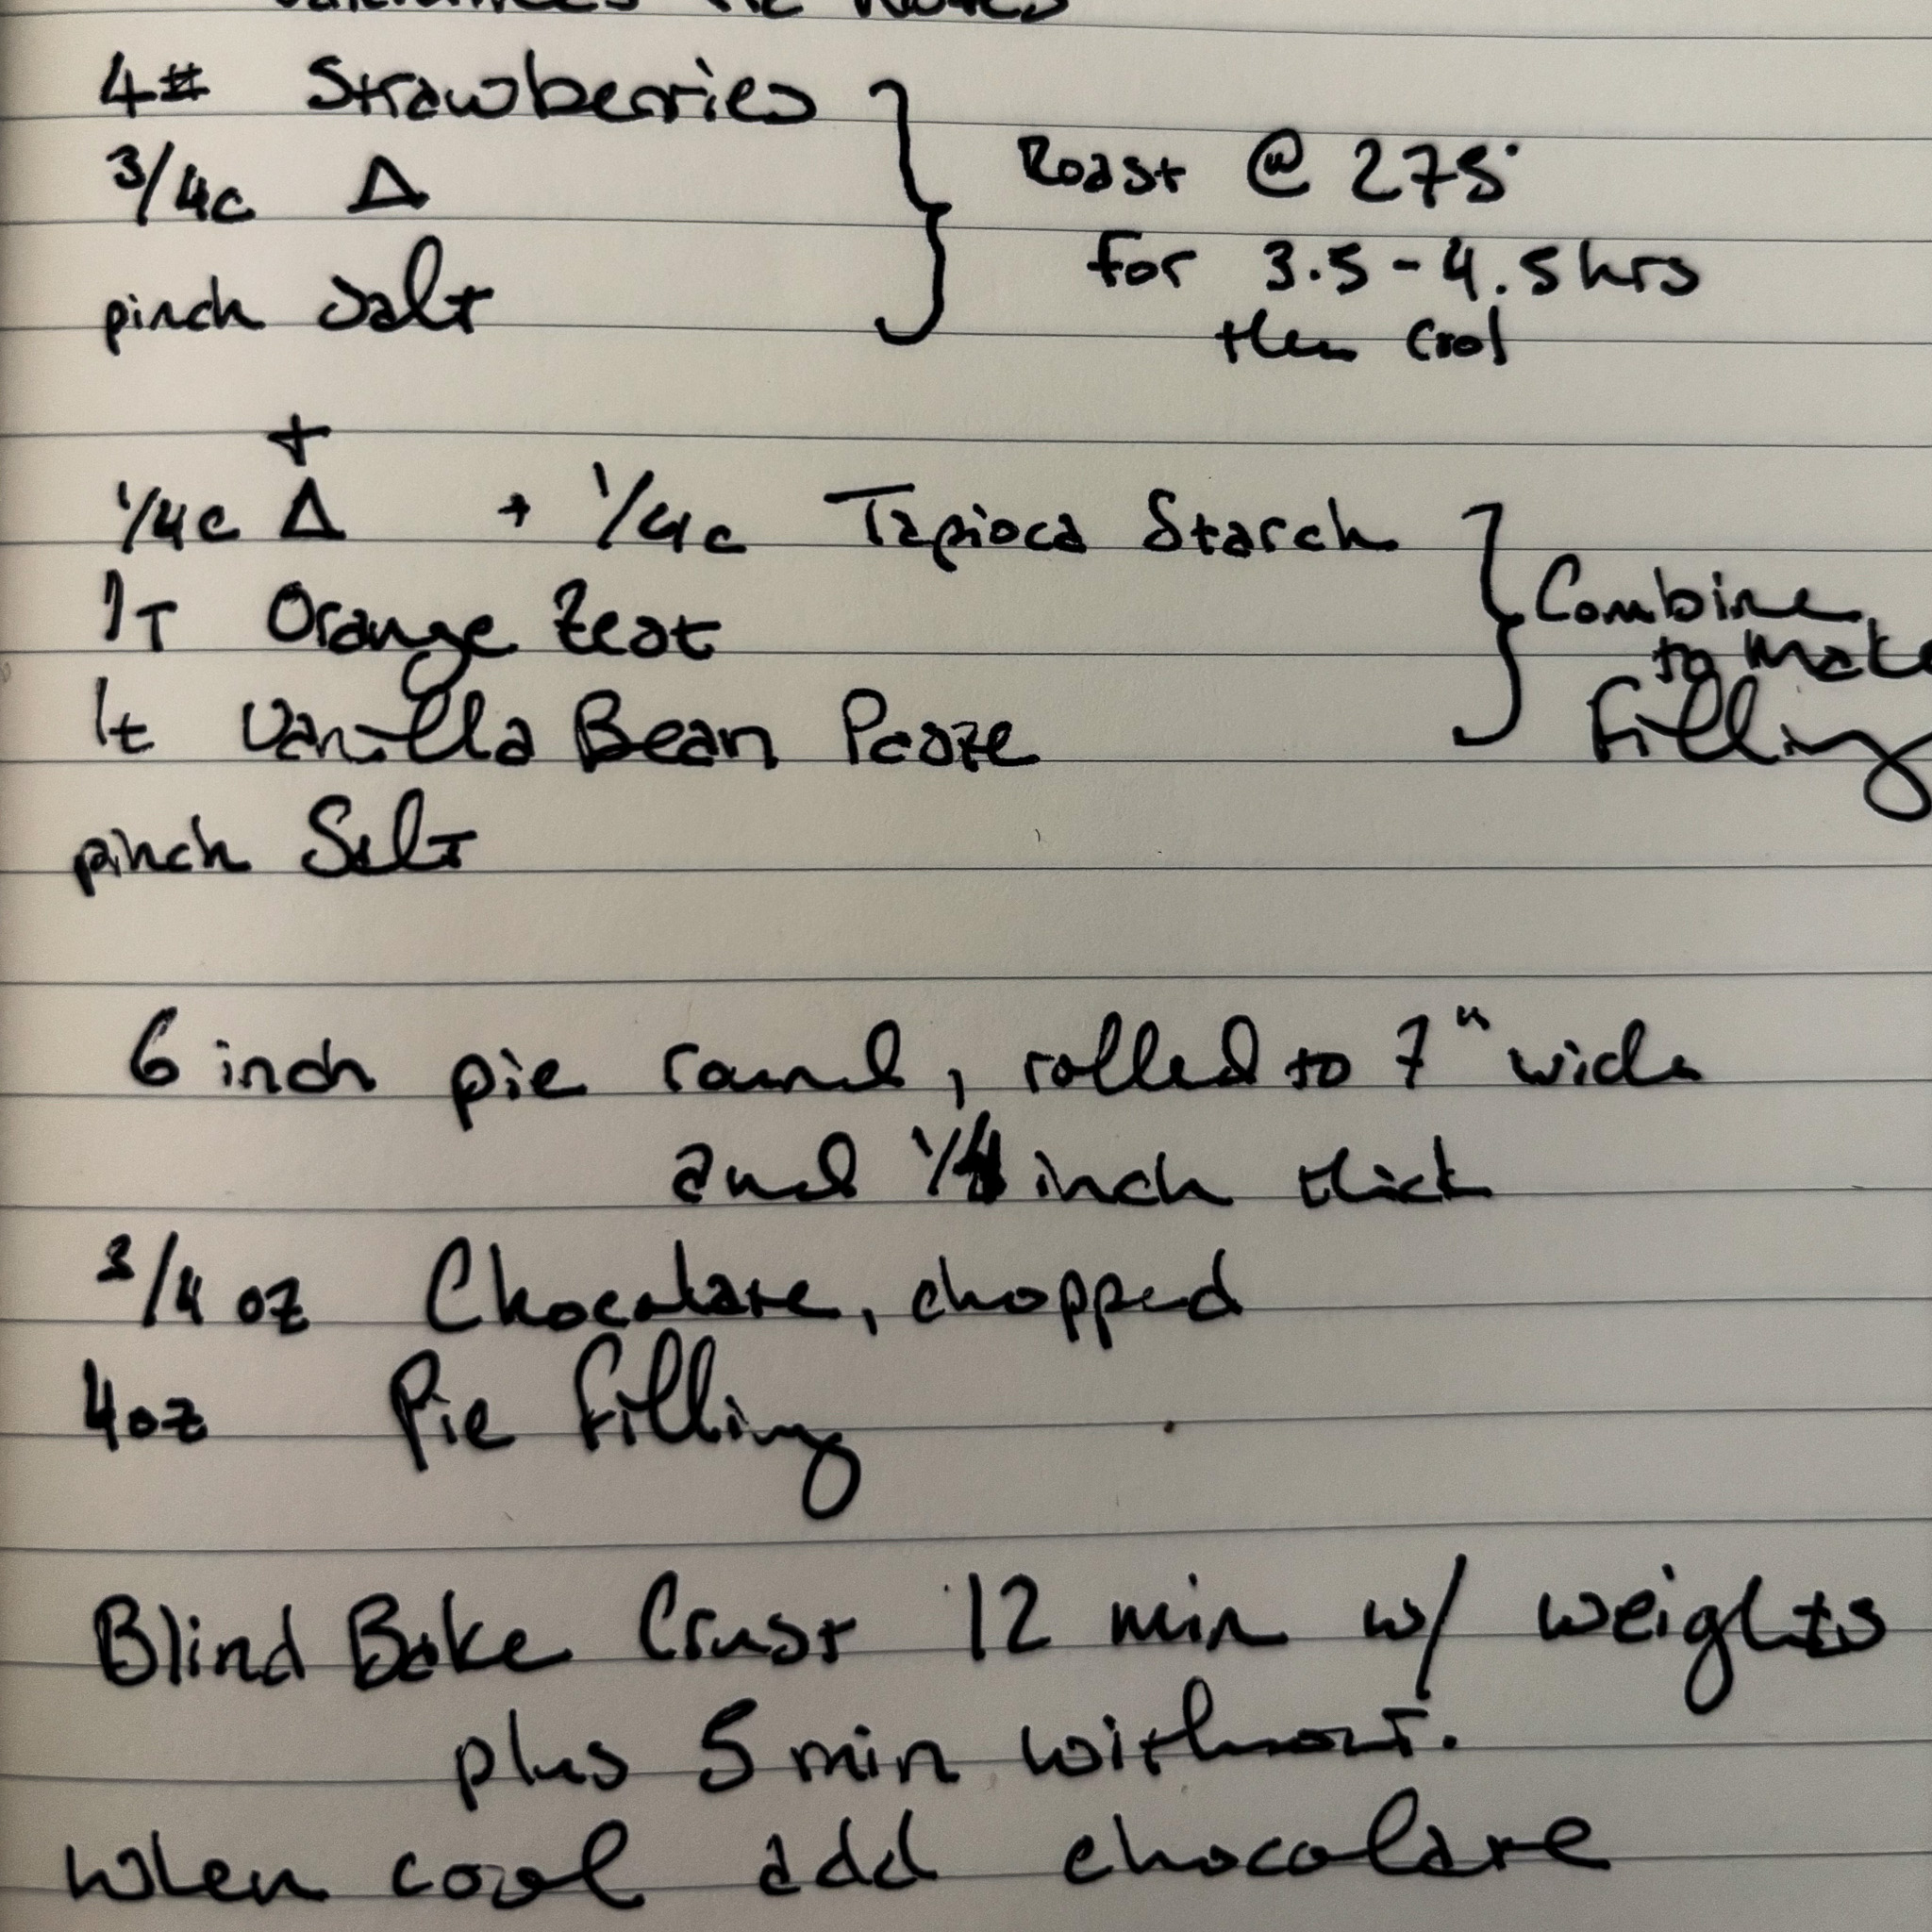 4# Strawberries
3/4c Δ
pinch Salt
Roast @ 275°
for 3.5-4.5hrs
then cool
+
1/4c Δ + 1/4c Tapioca Starch
1T Orange Zest
1t Vanilla Bean Paste
pinch Salt
Combine
to make
filling
6 inch pie round, rolled to 7" wide
and inch thick
3/4 oz Chocolate, chopped
4oz Pie filling
Blind Bake Crust 12 min w/ weights
plus 5 min without.
When cool add chocolate